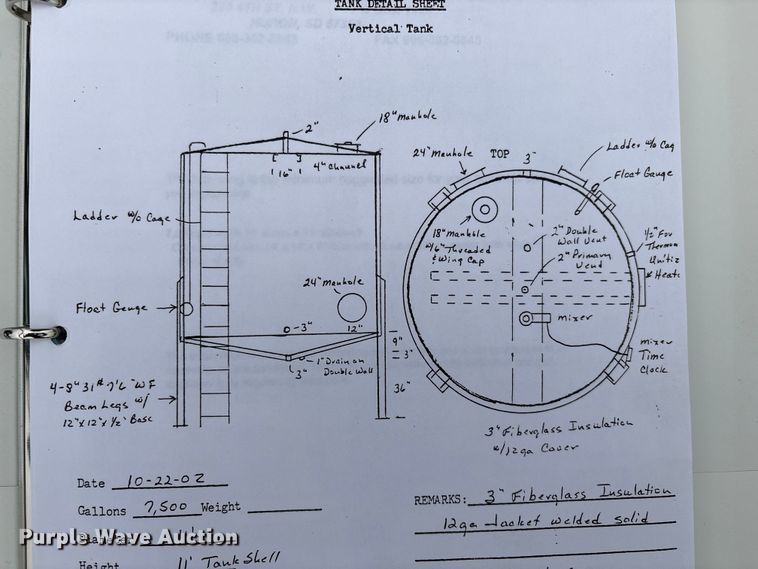 TANK DETAIL SHEET
Vertical Tank
2"
18" manhole
4" channel
16"
Ladder w/o Cage
24" manhole
Float Gauge
3"
12"
1" Drain on
Double Wall
3"
9"
3"
36"
4-8" 31# 7'6" WF
Beam Legs w/
12" x 12" x 1/2" Base
24" manhole
TOP
3"
Ladder w/o Cag
Float Gauge
18" manhole
w/6" Threaded
& Wing Cap
2" Double
Wall Vent
2" Primary
Vend
1/2" For
Thermom
Unitiz
Heate
mixer
mixer
Time
Clock
3" Fiberglass Insulation
w/12ga Cover
Date 10-22-02
Gallons 7,500 Weight
Height 11' Tank Shell
REMARKS: 3" Fiberglass Insulation
12ga Jacket welded solid
Purple Wave Auction